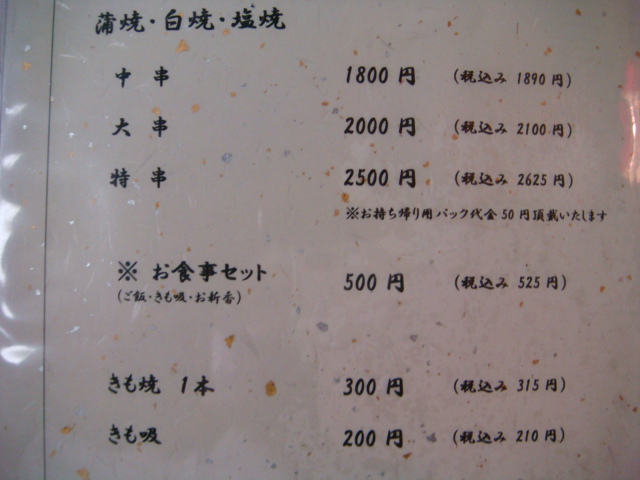 蒲焼・白焼・塩焼
中 串 1800 円 (税込み 1890 円)
大 串 2000 円 (税込み 2100 円)
特 串 2500 円 (税込み 2625 円)
※お持ち帰り用パック代金50円頂戴いたします
※ お食事セット 500 円 (税込み 525 円)
(ご飯・きも吸・お新香)
きも焼 1本 300 円 (税込み 315 円)
きも吸 200 円 (税込み 210 円)